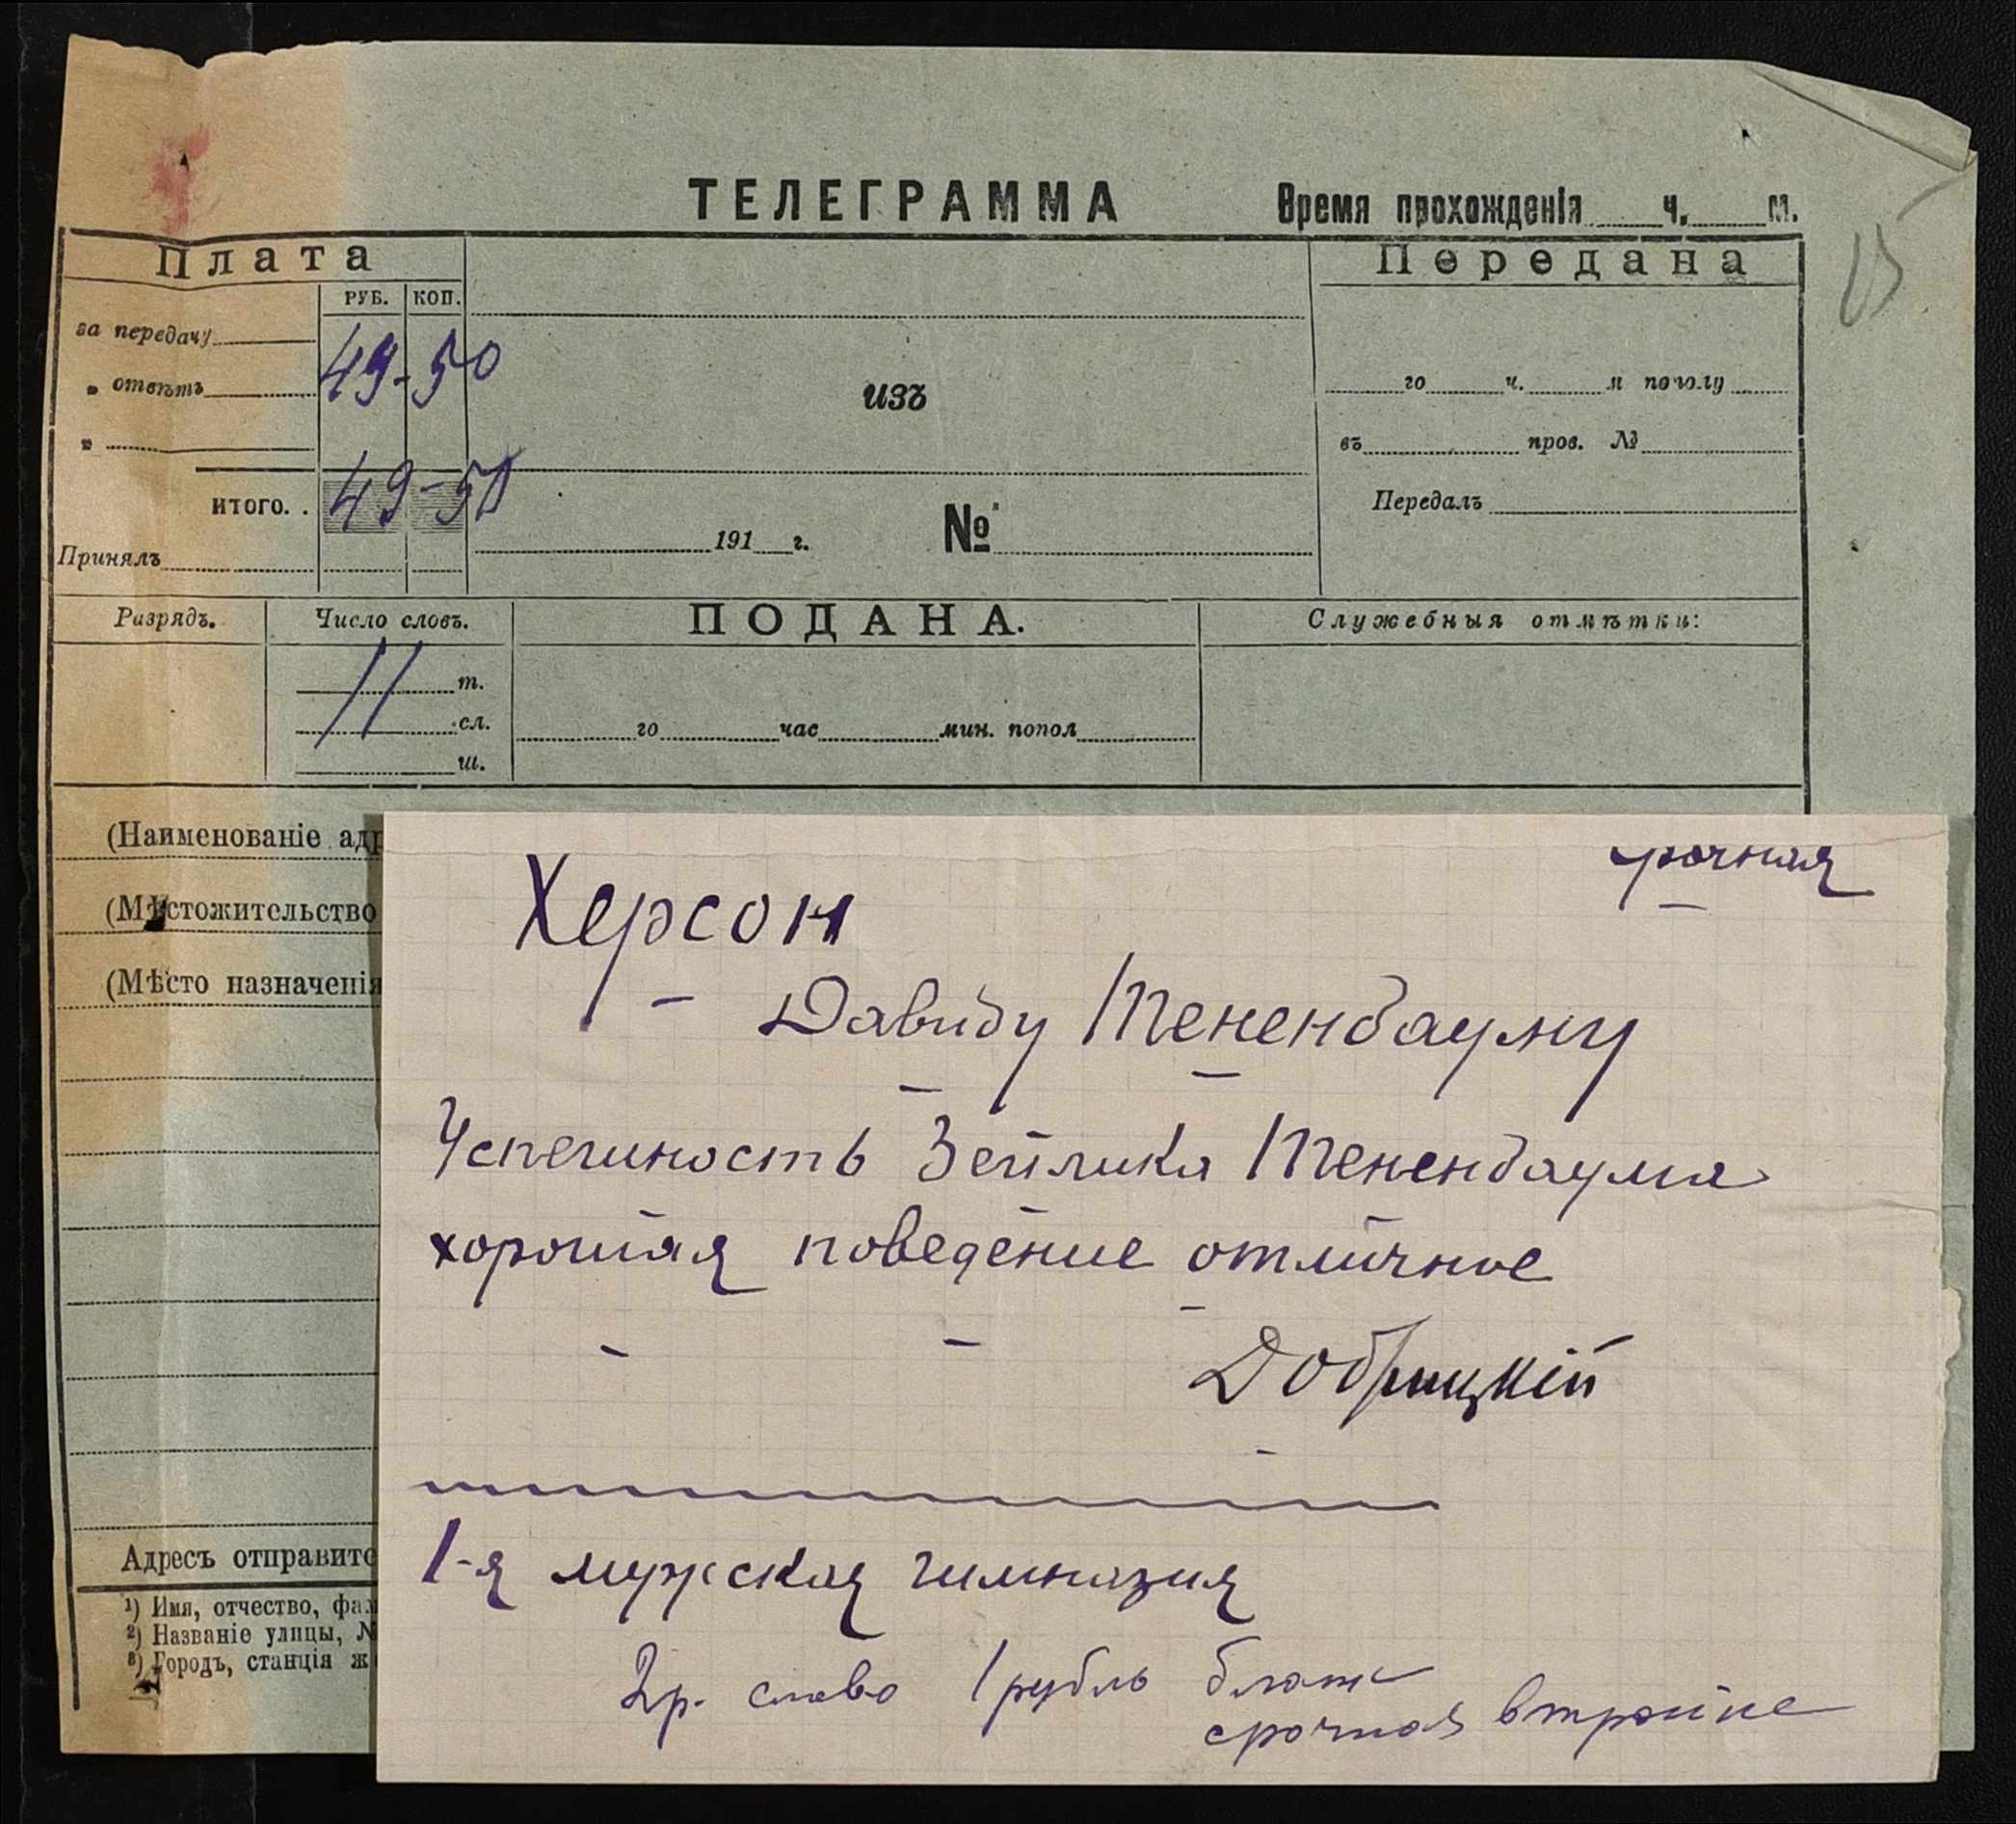 ТЕЛЕГРАММА Время прохожденія ч. м.
Плата
РУБ. КОП.
за передачу
„ отвѣтъ 49-50
„
ИТОГО. . 49-50
Принялъ
изъ
191 г. №
Передана
го ч. м пополу
въ пров. №
Передалъ
Разрядъ. Число словъ. ПОДАНА. Служебныя отмѣтки:
11 т.
сл.
ш.
го час мин. попол
(Наименованіе адр
(Мѣстожительство
(Мѣсто назначенія
Адресъ отправите
¹) Имя, отчество, фам
²) Названіе улицы, №
³) Городъ, станція ж
срочная
Херсон
Давиду Тененбауму
Успешность Зейлика Тененбаума
хорошая поведение отличное
Добрицкій
1-я мужская гимназия
2р. слово 1 рубль бланк
срочная втройне